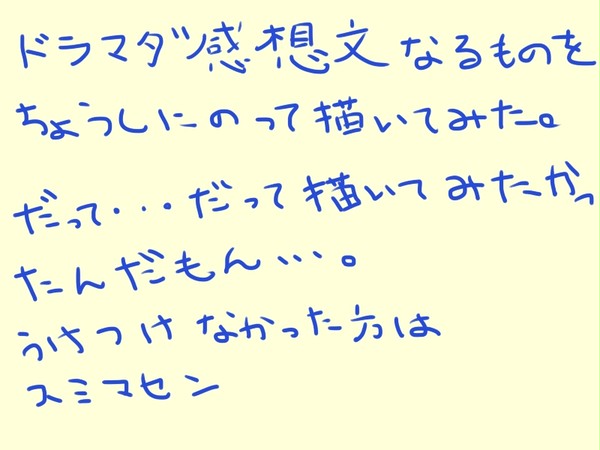 ドラマダツ感想文なるものを
ちょうしにのって描いてみた。
だって・・・だって描いてみたかっ
たんだもん・・・。
うけつけなかった方は
スミマセン